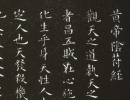 黃帝陰符經
觀天之道執天之
者昌五賊在心施
化生乎身天性人
定人也天發殺機